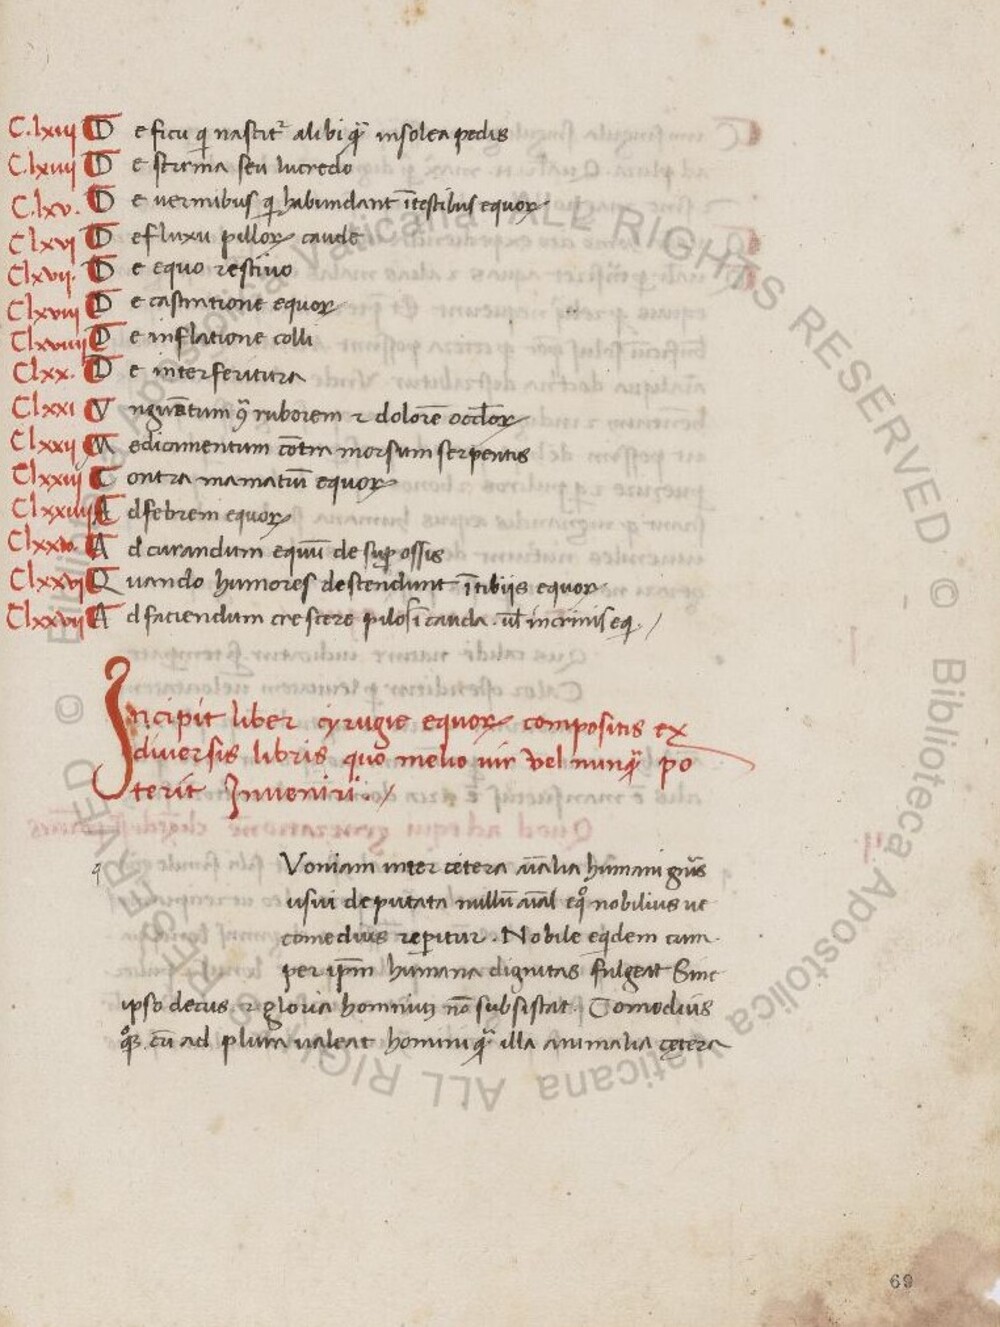 C.lxiii De ficu q̄ nascit᷑ alibi q̄ᷓ in solea pedis
C.lxiiii De struma seu lucredo
C.lxv. De uermibus q̄ habundant ītestibus equoꝝ
Clxvi De fluxu pilloꝝ caude
Clxvii. De equo restiuo
Clxviii De castratione equoꝝ
Clxviiii De inflatione colli
Clxx. De interferitura
Clxxi Vnguētum ꝯ̄ ruborem ⁊ dolorē occl̄oꝝ
Clxxii Medicamentum cōtra morsum serpentis
Clxxiii Contra mamatiuī equoꝝ
Clxxiiii Ad febrem equoꝝ
Clxxv. Ad curandum equū de suꝑ ossis
Clxxvi Quando humores descendunt ī tibijs equoꝝ
Clxxvii Ad faciendum crescere pilos ī cauda . ul̄ in crinis eq̄. /
Incipit liber cyrugie equoꝝ compositis ex
diuersis libris quo melio uix vel nunq̄ᷓ po
terit Inueniri . /
q Voniam inter cetera aīalia humani gn̄is
usui deputata nullū aīal eq̊ nobilius ue
comedius reperitur . Nobile eqdem cum
per ip̄m humana dignitas fulgeat Sine
ipso decus ⁊ gloria hominiu nō subsistat . Comodius
q̊ꝫ. cū ad plura ualeat homini q̄ᷓ illa animalia cetera
69
Biblioteca Apostolica Vaticana ALL RIGHTS RESERVED ©